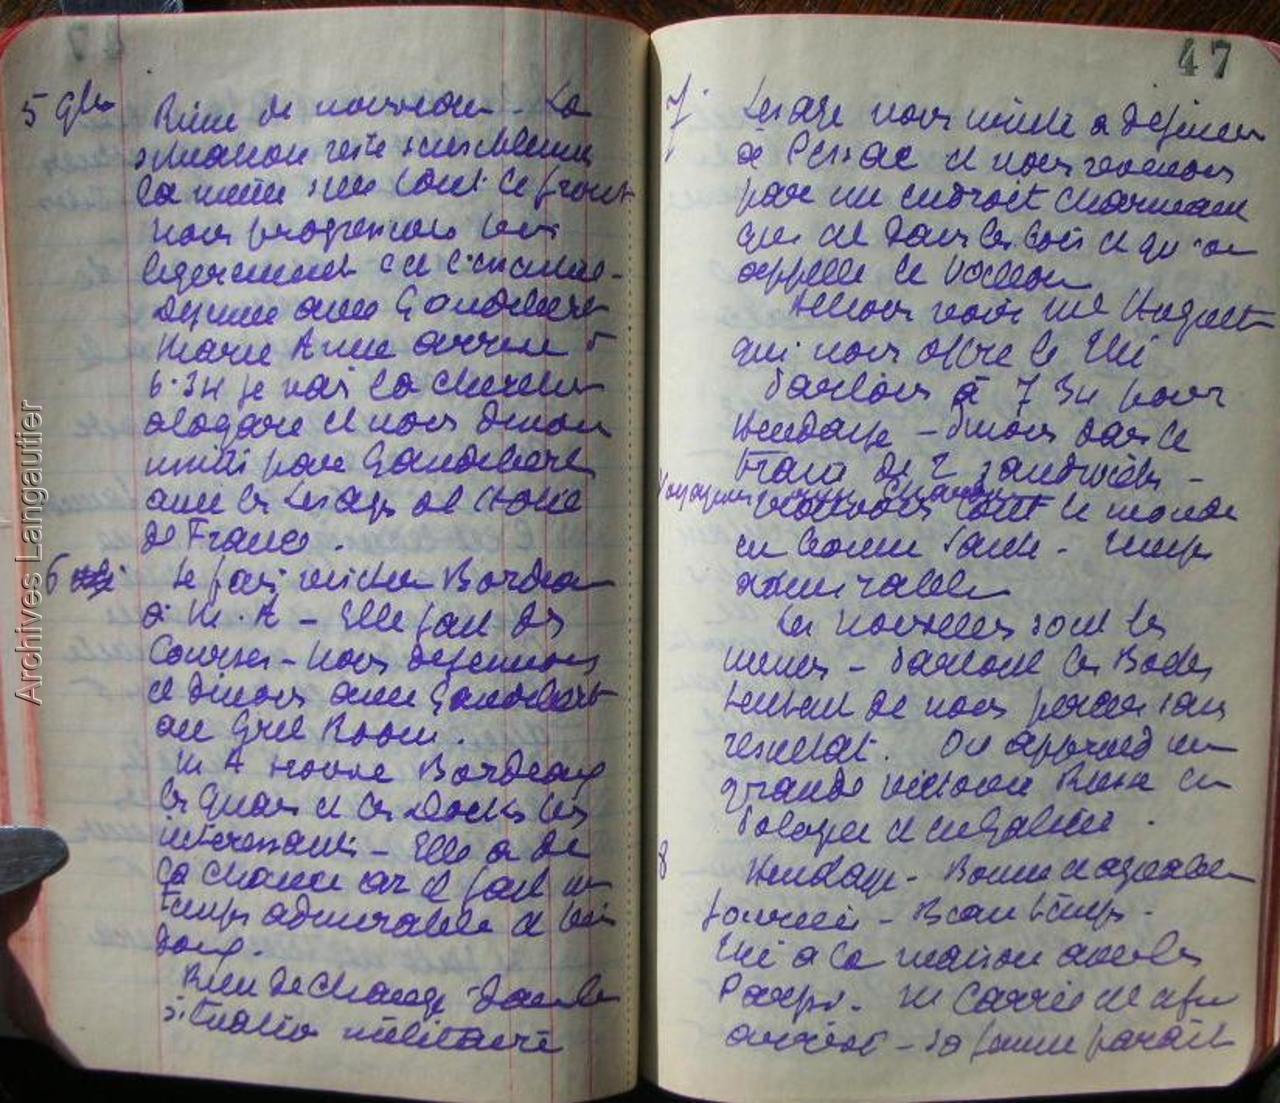 47
5 9bre Rien de nouveau - La
situation reste sensiblement
la même sur tout le front
nous progressons très
légèrement c'est l'essentiel -
Déjeune avec Gaudibert
Marie Anne arrive à
6.34 je vais la chercher
à la gare et nous dinons
invités par Gaudibert
avec les Lesage et
de France.
6 Je fais visiter Bordeaux
à M. A - Elle fait des
courses - nous déjeunons
et dinons avec Gaudibert
au Gril Room.
M A trouve Bordeaux
les quais et les Docks très
intéressants - Elle a de
la chance car il fait un
temps admirable et très
doux.
Rien de changé dans la
situation militaire
7 Lesage nous invite à déjeuner
à Pessac et nous revenons
par un endroit charmant
qui est dans les bois et qu'on
appelle le Vallon
Allons voir Me Huguet
qui nous offre le thé
Partons à 7 34 pour
Hendaye - Dinons dans le
train de 2 sandwichs -
Voyageons avec
trouvons tout le monde
en bonne santé - Temps
admirable
Les nouvelles sont les
mêmes - Partout les Boches
tentent de nous percer sans
résultat. On apprend une
grande victoire Russe en
Pologne et en Galicie.
8 Hendaye - Bonne et agréable
journée - Beau temps -
Thé à la maison avec les
M Carrié est
arrivé - sa femme paraît
Archives Langautier